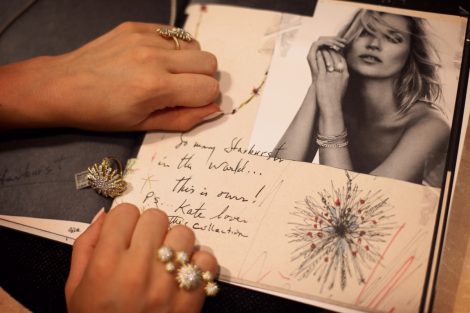 So many Starbursts
in the World...
this is ours!
Ps... Kate loves
this collection